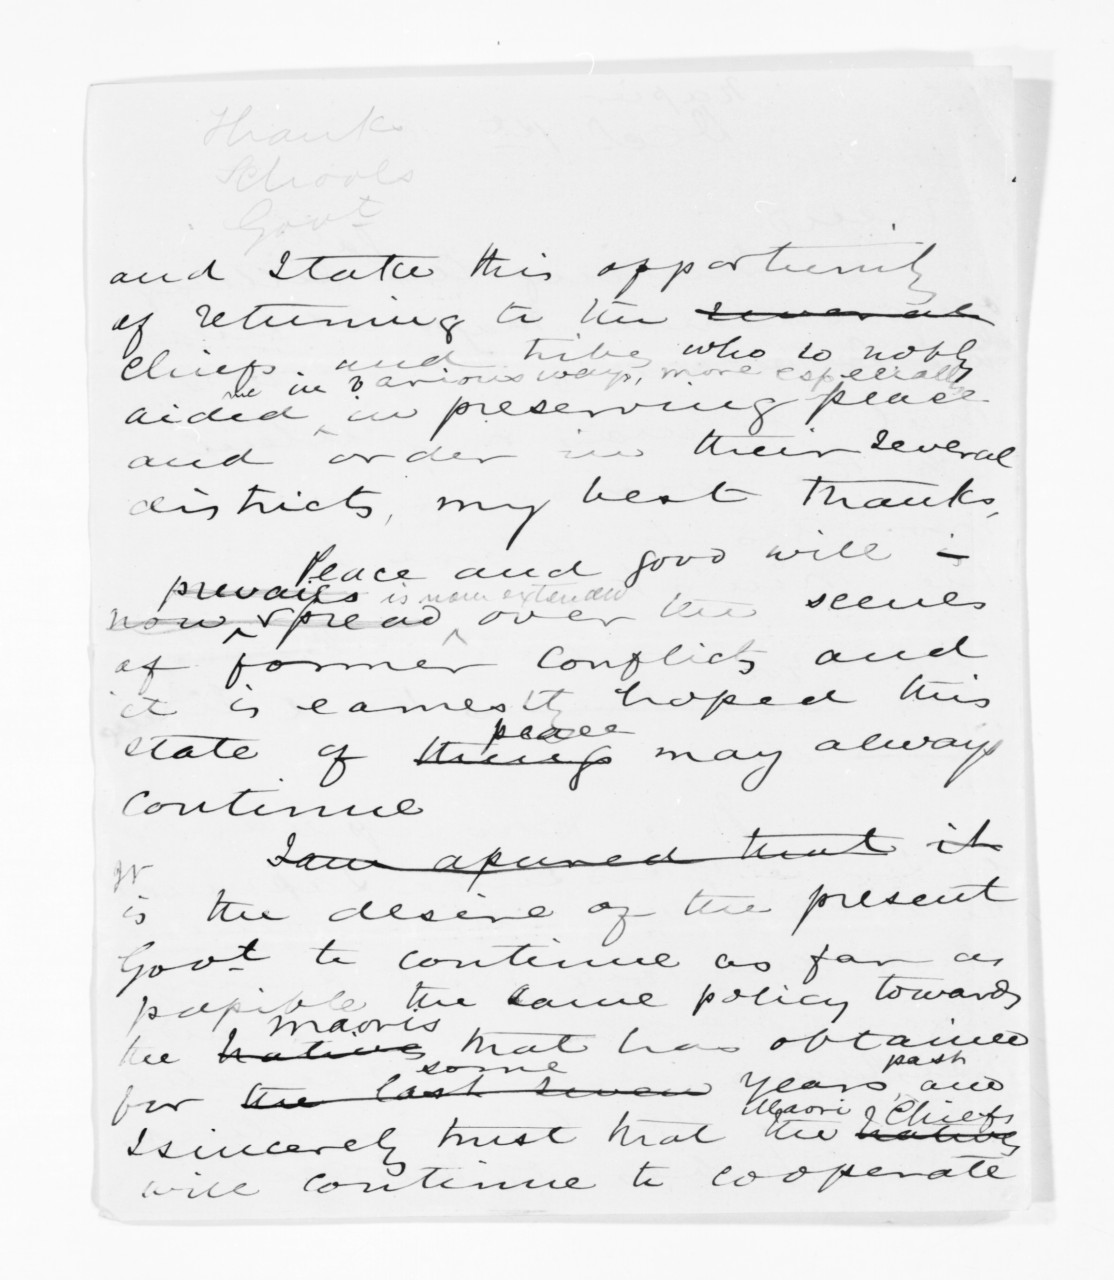 Thanks
Schools
Govt
and I take this opportunity
of returning to the several
chiefs and tribes who so nobly
me in various ways, more especially
aided in preserving peace
and order in their several
districts, my best thanks,
Peace and good will is
prevails is now extended
now spread over the scenes
of former conflicts and
it is earnestly hoped this
peace
state of things may always
continue
I am assured that it
It
is the desire of the present
Govt to continue as far as
possible the same policy towards
Maoris
the natives that has obtained
some past
for the last seven years, and
Maori Chiefs
I sincerely trust that the natives
will continue to cooperate